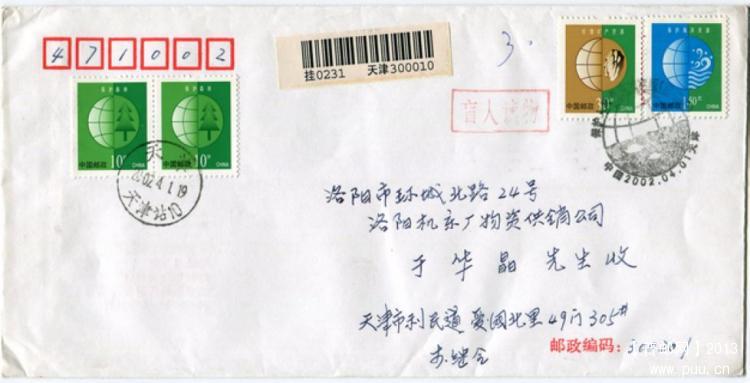 471002
挂0231 天津300010
3.
保护森林
中国邮政 10分 CHINA
保护森林
中国邮政 10分 CHINA
珍惜矿产资源
中国邮政 30分 CHINA
保护海洋资源
中国邮政 150分 CHINA
盲人读物
天津
2002.4.1.19
天津站10
中国2002.04.01天津
洛阳市环城北路24号
洛阳机车厂物资供销公司
于华晶 先生收
天津市利民道爱国北里49门305#
邮政编码:
2013
www.puu.cn